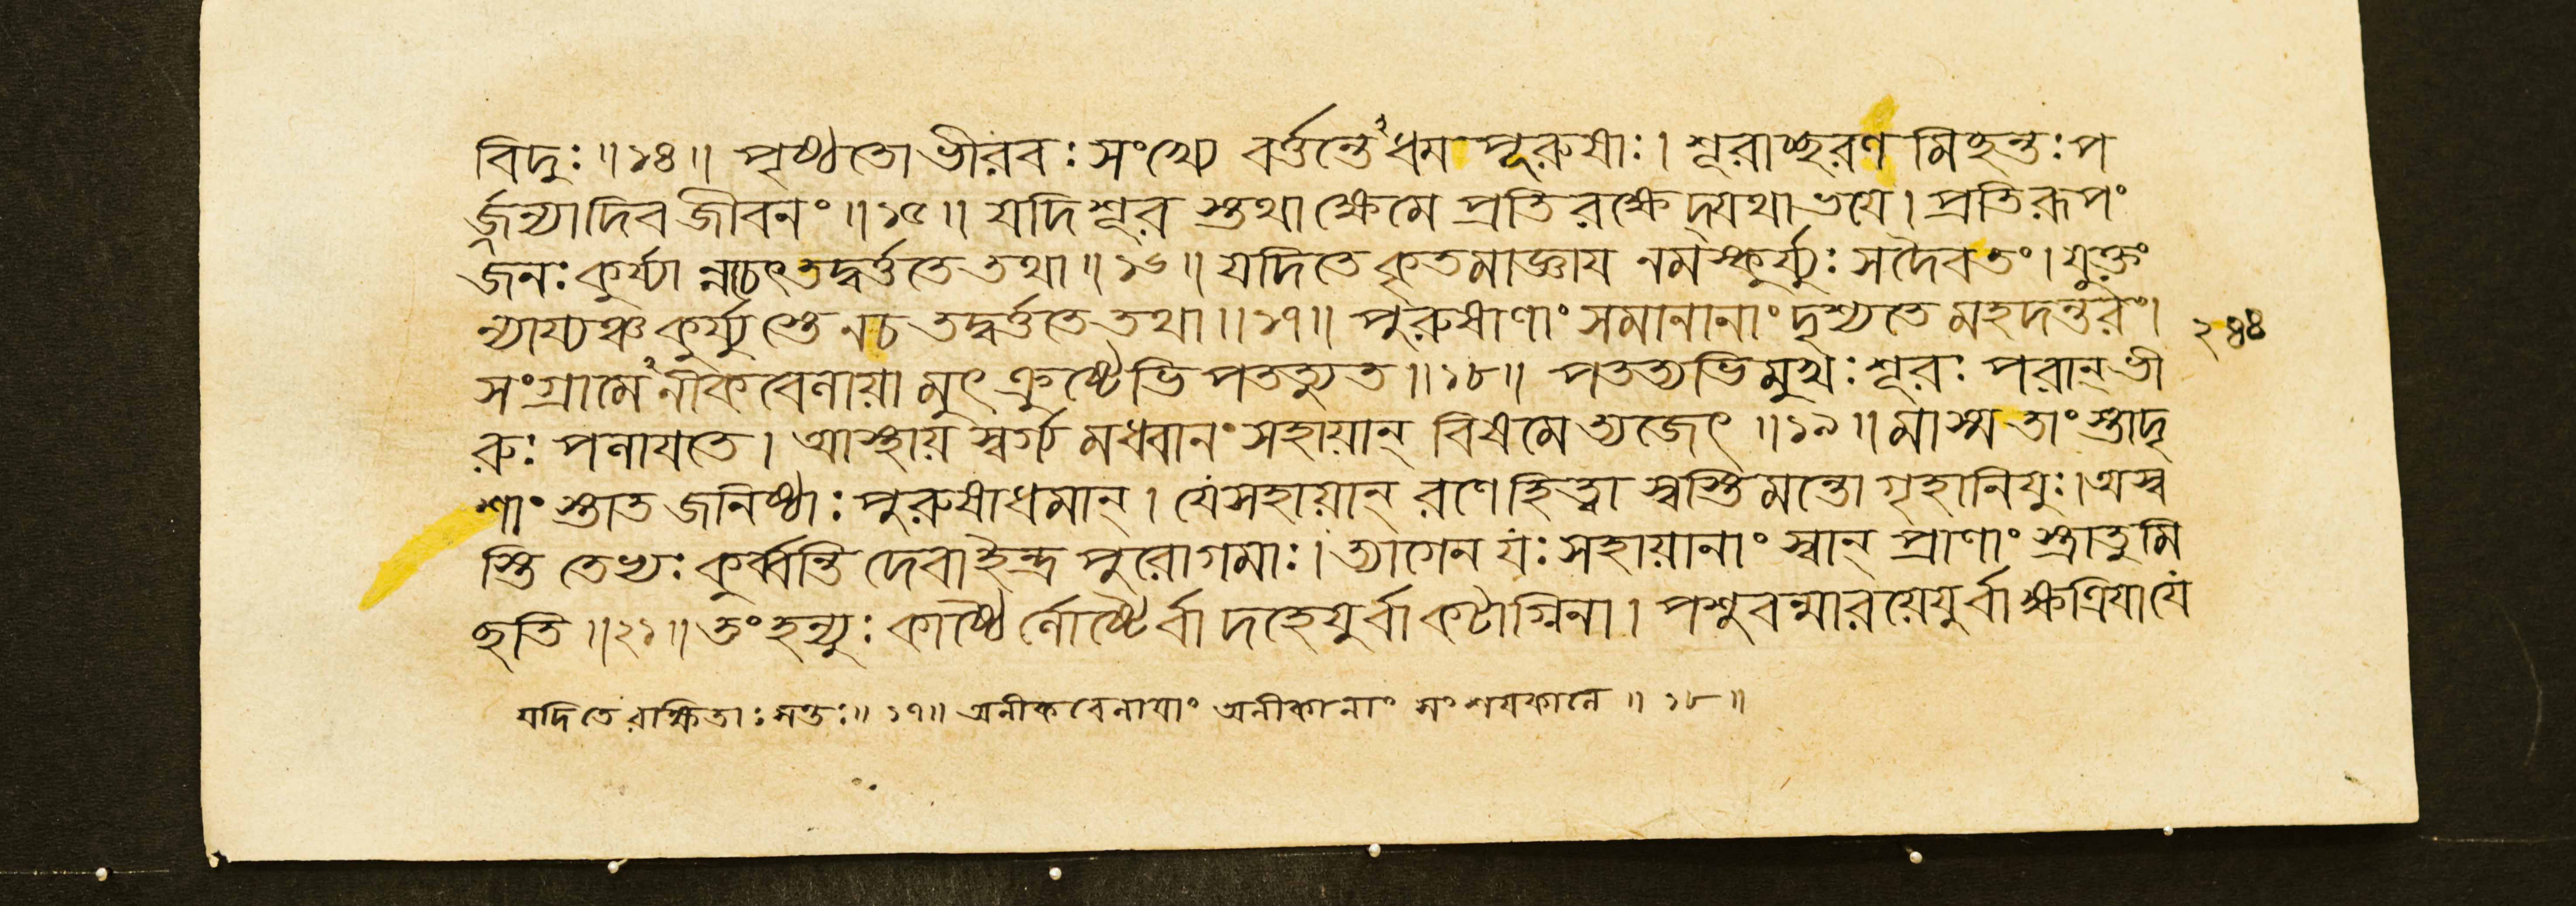 বিদুঃ ॥১৪॥ পৃষ্ঠতো ভীরবঃ সংখ্যে বর্ত্তন্তেঽধম পূরুষাঃ। শূরাচ্ছরণ মিচ্ছন্তঃ প
র্জন্যাদিব জীবনং ॥১৫॥ যদি শূর স্তথা ক্ষেমে প্রতি রক্ষে দ্যথা ভয়ে। প্রতি রূপং
জনঃ কুর্য্যা ন্নচেৎ তদ্বর্ত্ততে তথা ॥১৬॥ যদি তে কৃতমাজ্ঞায় নমস্কুর্য্যুঃ সদৈবতং। যুক্তং
ন্যায্যঞ্চ কুর্য্যু স্তে নচ তদ্বর্ত্ততে তথা ॥১৭॥ পুরুষাণাং সমানানাং দৃশ্যতে মহদন্তরং।
সংগ্রামেঽনীকবেলায়া মুৎক্রুষ্টেভি পতত্যুত ॥১৮॥ পতত্যভিমুখঃ শূরঃ পরান্ ভী
রুঃ পলায়তে। আস্থায় স্বর্গ্য মধ্বানং সহায়ান্ বিষমে ত্যজেৎ ॥১৯॥ মাস্ম তাং স্তাদৃ
শাং স্তাত জনিষ্ঠাঃ পুরুষাধমান্। যে সহায়ান্ রণে হিত্বা স্বস্তি মন্তো গৃহানিযুঃ। অস্ব
স্তি তেভ্যঃ কুর্ব্বন্তি দেবা ইন্দ্র পুরোগমাঃ। ত্যাগেন যঃ সহায়ানাং স্বান্ প্রাণাং স্ত্রাতুমি
চ্ছতি ॥২১॥ তং হন্যুঃ কাষ্ঠৈ র্লোষ্ঠৈর্বা দহেযুর্বা কটাগ্নিনা। পশুবন্মারয়েযুর্বা ক্ষত্রিয়া যে
২৪৪
যদি তে রাক্ষিতাঃ সন্তঃ ॥১৭॥ অনীকবেলায়াং অনীকানাং সংশয়কালে ॥১৮॥